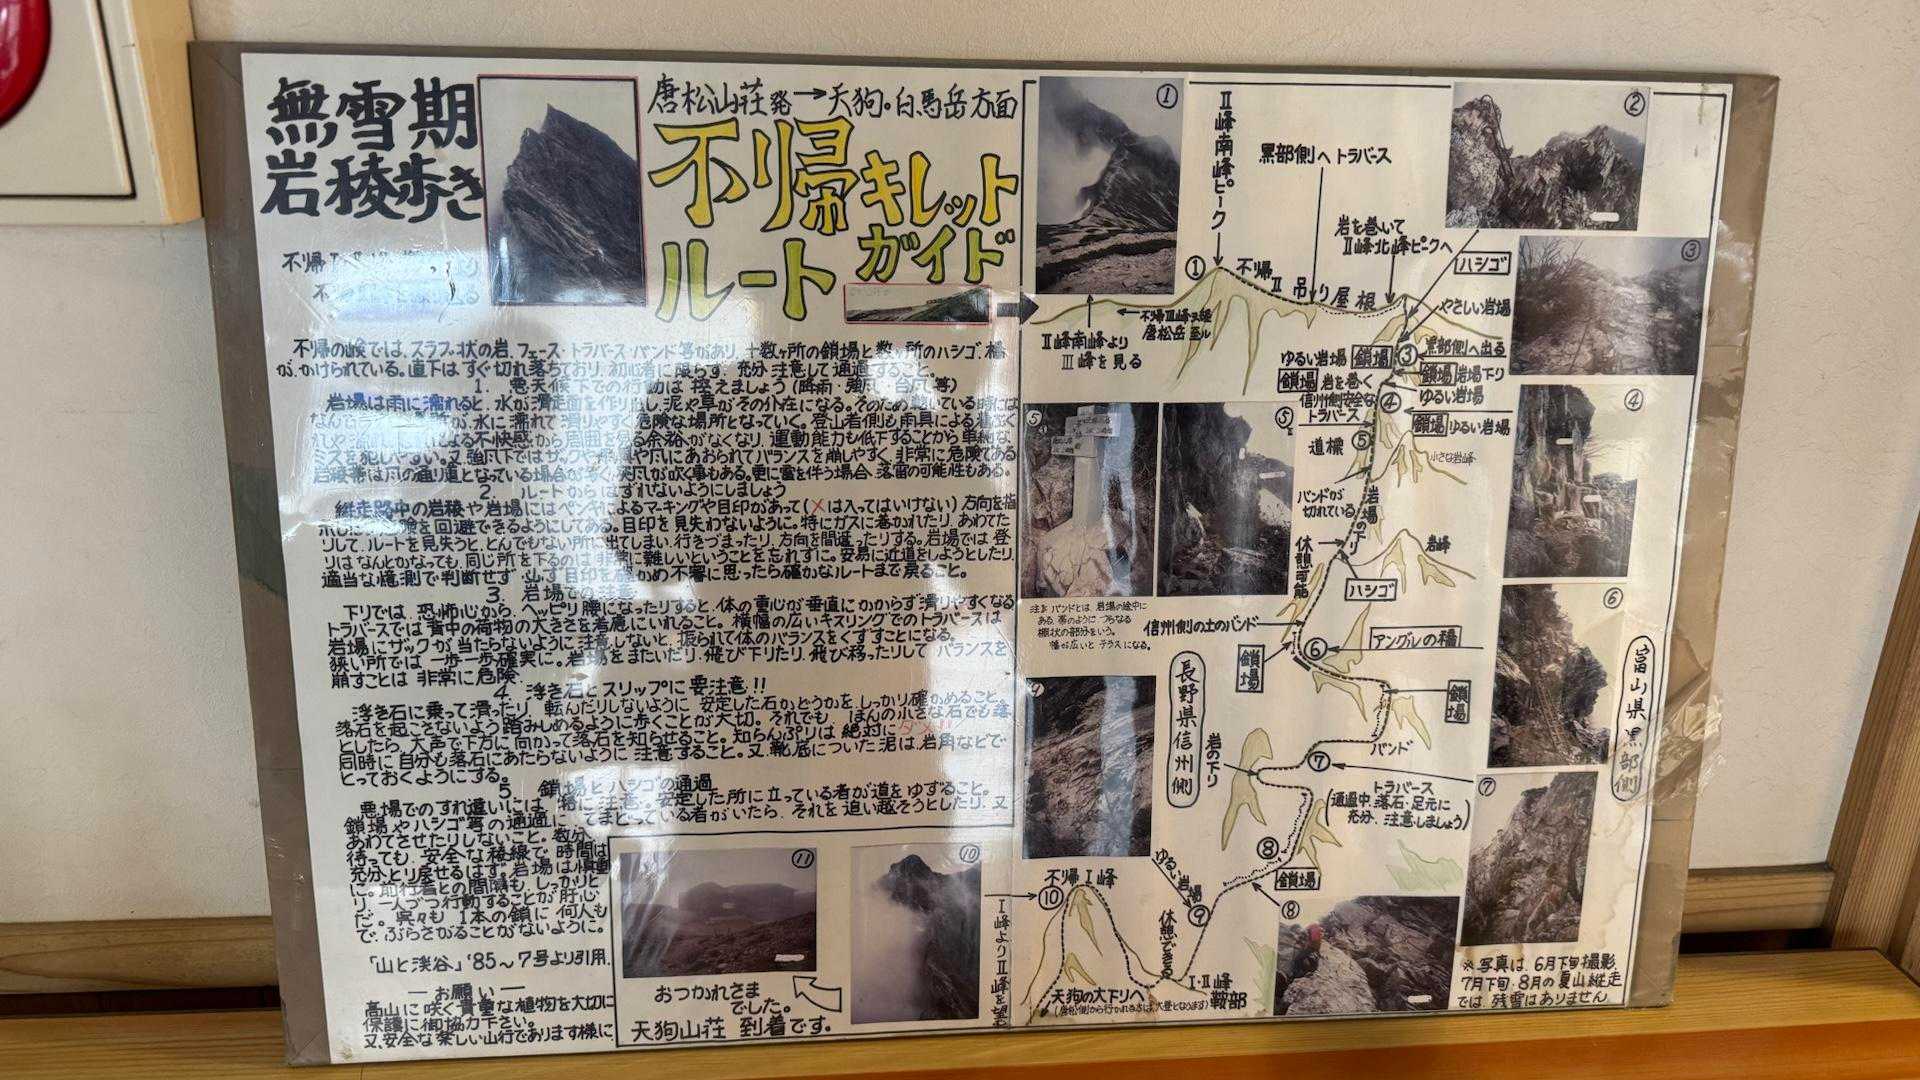 無雪期
岩稜歩き
唐松山荘発→天狗・白馬岳方面
不帰キレット
ルートガイド
不帰の嶮では、スラブ状の岩、フェース・トラバース・バンド等があり、十数ヶ所の鎖場と数ヶ所のハシゴ、橋
が、かけられている。直下はすぐ切れ落ちており、初心者に限らず、充分注意して通過すること。
1. 悪天候下での行動は控えましょう(降雨・強風・台風等)
岩場は雨に濡れると、水が滑走面を作り出し、泥や草がその介在になる。そのため乾いている時には
が、水に濡れて滑りやすく危険な場所となる。登山者側も雨具による
不快感から周囲を見る余裕がなくなり、運動能力も低下することから単純な
ミスを犯しやすい。又、強風下ではザックや
にあおられてバランスを崩しやすく、非常に危険である
岩稜帯は風の通り道となっている場合が多く、突風が吹く事もある。更に雷を伴う場合、落雷の可能性もある。
2. ルートからはずれないようにしましょう
縦走路中の岩稜や岩場にはペンキによるマーキングや目印があって(×は入ってはいけない)方向を指
示し
険を回避できるようにしてある。目印を見失わないように。特にガスに巻かれたり、あわてた
りして、ルートを見失うと、とんでもない所に出てしまい、行きづまったり、方向を間違ったりする。岩場では、登
りはなんとかなっても、同じ所を下るのは非常に難しいということを忘れずに。安易に近道をしようとしたり、
適当な憶測で判断せず、必ず目印を確かめ、不審に思ったら確かなルートまで戻ること。
3. 岩場での注意
下りでは、恐怖心から、ヘッピリ腰になったりすると、体の重心が垂直にかからず滑りやすくなる
トラバースでは背中の荷物の大きさを考慮にいれること。横幅の広いキスリングでのトラバースは
岩場にザックが当たらないように注意しないと、振られて体のバランスをくずすことになる。
狭い所では一歩一歩確実に。岩場をまたいだり、飛び下りたり、飛び移ったりして、バランスを
崩すことは非常に危険。
4. 浮き石とスリップに要注意!!
浮き石に乗って滑ったり、転んだりしないように、安定した石かどうかを、しっかり確かめること。
落石を起こさないよう踏みしめるように歩くことが大切。それでも、ほんの小さな石でも落
としたら、大声で下方に向かって落石を知らせること。知らんぷりは絶対に
同時に自分も落石にあたらないように注意すること。又、靴底についた泥は、岩角などで
とっておくようにする。
5. 鎖場とハシゴの通過
悪場でのすれ違いには、特に注意。安定した所に立っている者が道をゆずること。
鎖場やハシゴ等の通過に、てまどっている者がいたら、それを追い越そうとしたり、又
あわてさせたりしないこと。数分
待っても、安全な稜線で、時間は
充分とり戻せるはず。岩場は慎重
に。同行者との間隔も、しっかりと
り、一人づつ行動することが肝心
だ。呉々も、1本の鎖に、何人も
で、ぶらさがることがないように。
「山と渓谷」'85〜7号より引用。
―お願い―
高山に咲く貴重な植物を大切に
保護に御協力下さい。
又、安全な楽しい山行であります様に
⑪
おつかれさま
でした。
天狗山荘 到着です。
⑩
Ⅰ峰よりⅡ峰を望む
①
Ⅱ峰南峰ピーク
黒部側へトラバース
②
岩を巻いて
Ⅱ峰北峰ピークへ
ハシゴ
③
①
不帰Ⅱ吊り屋根
やさしい岩場
Ⅱ峰南峰より
Ⅲ峰を見る
唐松岳 至ル
ゆるい岩場 鎖場
③
黒部側へ出る
鎖場 岩を巻く
鎖場 岩場下り
信州側安全な
トラバース
④
ゆるい岩場
鎖場 ゆるい岩場
④
⑤
⑤
道標
⑤
小さな岩峰
バンドが
切れている
岩場の下り
休憩可能
岩峰
ハシゴ
注意 バンドとは、岩場の途中に
ある、帯のように つらなる
棚状の部分をいう。
幅が広いと テラスになる。
信州側の土のバンド
⑥
アングルの橋
⑥
鎖場
鎖場
長野県信州側
富山県黒部側
岩の下り
バンド
⑦
トラバース
(通過中、落石・足元に
充分、注意しましょう)
⑦
⑧
鎖場
⑧
⑨
ゆるい岩場
⑨
休憩できる
不帰Ⅰ峰
⑩
Ⅰ・Ⅱ峰
鞍部
天狗の大下りへ
(唐松側から行かれる方は、大登となります)
※写真は、6月下旬撮影
7月下旬、8月の夏山縦走
では、残雪はありません